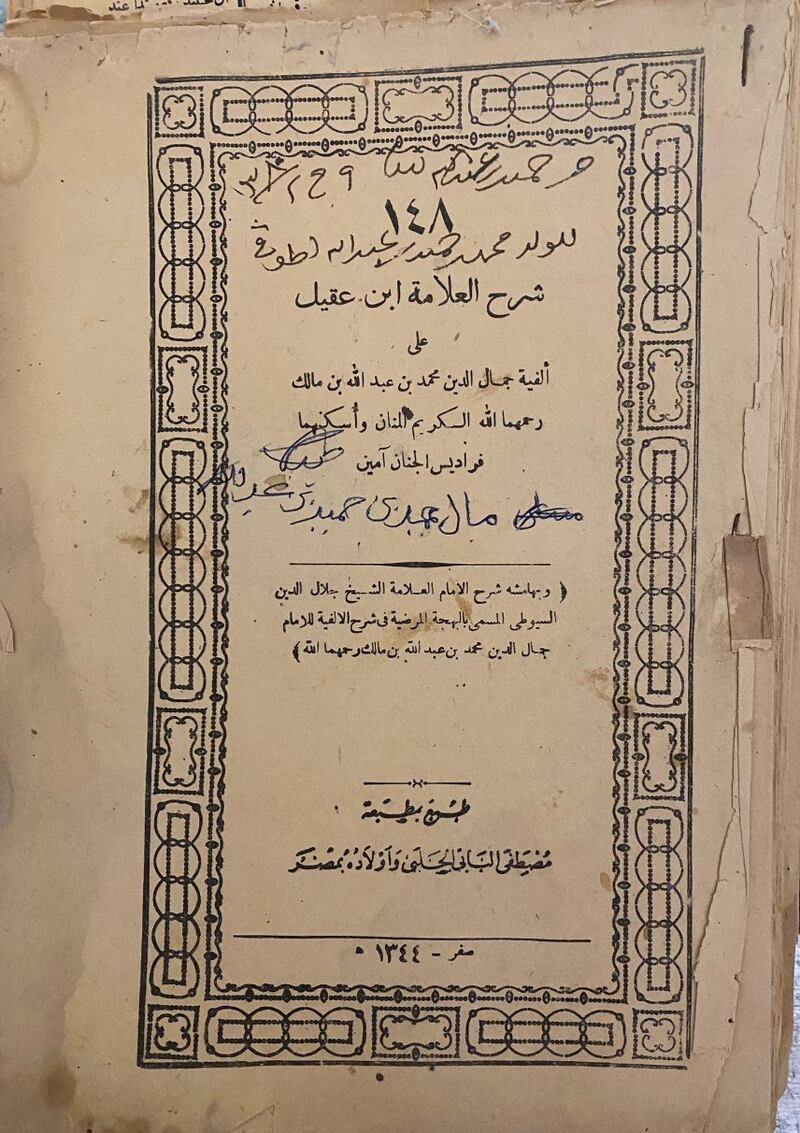 ١٤٨
للولد محمد حميد عبد الله
شرح العلامة ابن عقيل
على
ألفية جمال الدين محمد بن عبد الله بن مالك
رحمهما الله الكريم المنان وأسكنهما
فراديس الجنان آمين
مال حميد بن
﴿ وبهامشه شرح الامام العلامة الشيخ جلال الدين
السيوطى المسمى بالبهجة المرضية فى شرح الالفية للامام
جمال الدين محمد بن عبد الله بن مالك رحمهما الله ﴾
طبع بمطبعة
مصطفى البابى الحلبى وأولاده بمصر
صفر - ١٣٤٤ ه